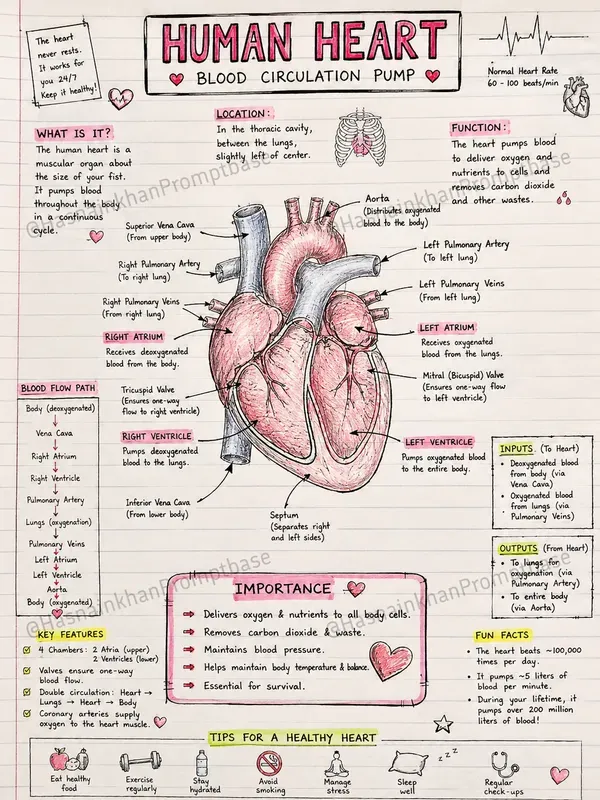 The heart
never rests.
It works for
you 24/7
Keep it healthy!
HUMAN HEART
BLOOD CIRCULATION PUMP
Normal Heart Rate
60 - 100 beats/min
WHAT IS IT?
The human heart is a
muscular organ about
the size of your fist.
It pumps blood
throughout the body
in a continuous
cycle.
LOCATION:
In the thoracic cavity,
between the lungs,
slightly left of center.
FUNCTION:
The heart pumps blood
to deliver oxygen and
nutrients to cells and
removes carbon dioxide
and other wastes.
@HasnainkhanPromptbase
@HasnainkhanPromptbase
Superior Vena Cava
(From upper body)
Right Pulmonary Artery
(To right lung)
Right Pulmonary Veins
(From right lung)
RIGHT ATRIUM
Receives deoxygenated
blood from the body.
Tricuspid Valve
(Ensures one-way
flow to right ventricle)
RIGHT VENTRICLE
Pumps deoxygenated
blood to the lungs.
Inferior Vena Cava
(From lower body)
Aorta
(Distributes oxygenated
blood to the body)
Left Pulmonary Artery
(To left lung)
Left Pulmonary Veins
(From left lung)
LEFT ATRIUM
Receives oxygenated
blood from the lungs.
Mitral (Bicuspid) Valve
(Ensures one-way flow
to left ventricle)
LEFT VENTRICLE
Pumps oxygenated blood
to the entire body.
Septum
(Separates right
and left sides)
BLOOD FLOW PATH
Body (deoxygenated)
↓
Vena Cava
↓
Right Atrium
↓
Right Ventricle
↓
Pulmonary Artery
↓
Lungs (oxygenation)
↓
Pulmonary Veins
↓
Left Atrium
↓
Left Ventricle
↓
Aorta
↓
Body (oxygenated)
INPUTS (To Heart)
• Deoxygenated blood
from body (via
Vena Cava)
• Oxygenated blood
from lungs (via
Pulmonary Veins)
OUTPUTS (From Heart)
• To lungs for
oxygenation (via
Pulmonary Artery)
• To entire body
(via Aorta)
@HasnainkhanPromptbase
@HasnainkhanPromptbase
IMPORTANCE
⇒ Delivers oxygen & nutrients to all body cells.
⇒ Removes carbon dioxide & waste.
⇒ Maintains blood pressure.
⇒ Helps maintain body temperature & balance.
⇒ Essential for survival.
KEY FEATURES
☑ 4 Chambers: 2 Atria (upper)
2 Ventricles (lower)
☑ Valves ensure one-way
blood flow.
☑ Double circulation: Heart →
Lungs → Heart → Body
☑ Coronary arteries supply
oxygen to the heart muscle.
FUN FACTS
• The heart beats ~100,000
times per day.
• It pumps ~5 liters of
blood per minute.
• During your lifetime, it
pumps over 200 million
liters of blood!
TIPS FOR A HEALTHY HEART
Eat healthy
food
Exercise
regularly
Stay
hydrated
Avoid
smoking
Manage
stress
z z z
Sleep
well
Regular
check-ups